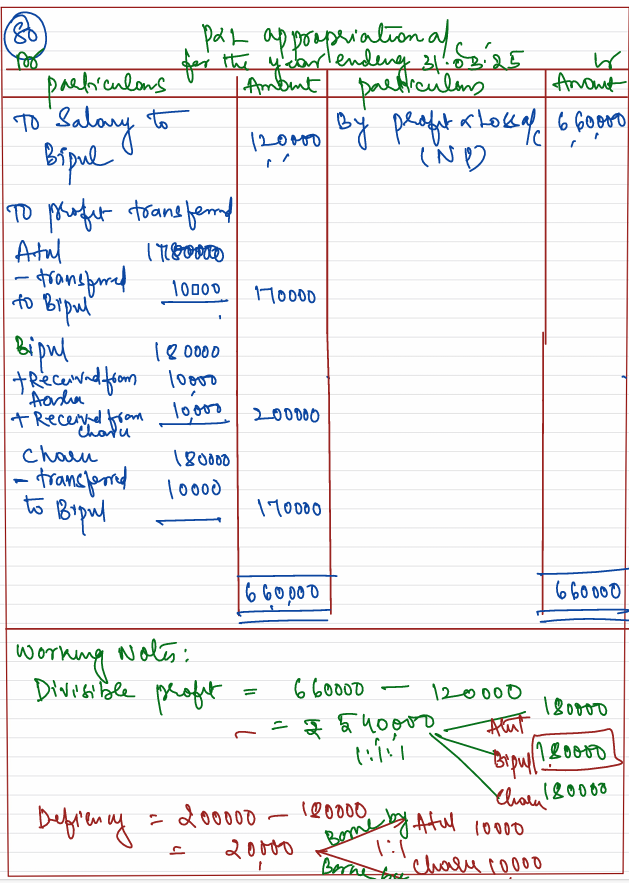 80
P&L appropriation a/c
for the year ending 31.03.25
Particulars Amount particulars Amount
TO Salary to Bipul 120000 By profit & Loss a/c (NP) 660000
TO profit transferred
Atul 180000
- transferred to Bipul 10000 170000
Bipul 180000
+ Received from 10,000
+ Received from Charu 10,000 200000
Charu 180000
- transferred to Bipul 10000 170000
660,000 660000
Working Notes:
Divisible profit = 660000 - 120000
= ₹ 540,000
1:1:1
Atul 180000
Bipul 180000
Charu 180000
Deficiency = 200000 - 180000
= 20,000
1:1
Borne by Atul 10000
Borne Charu 10,000